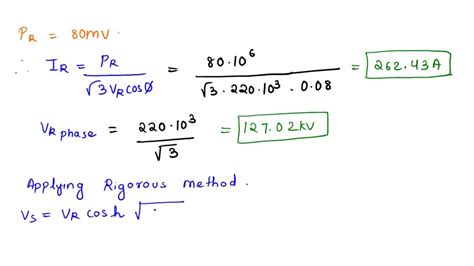 P_R = 80mv.
∴ I_R = P_R / √3 V_R cosø = 80·10^6 / √3·220·10^3·0.08 = 262.43A
V_R phase = 220·10^3 / √3 = 127.02kV
Applying Rigorous method.
V_S = V_R cosh √